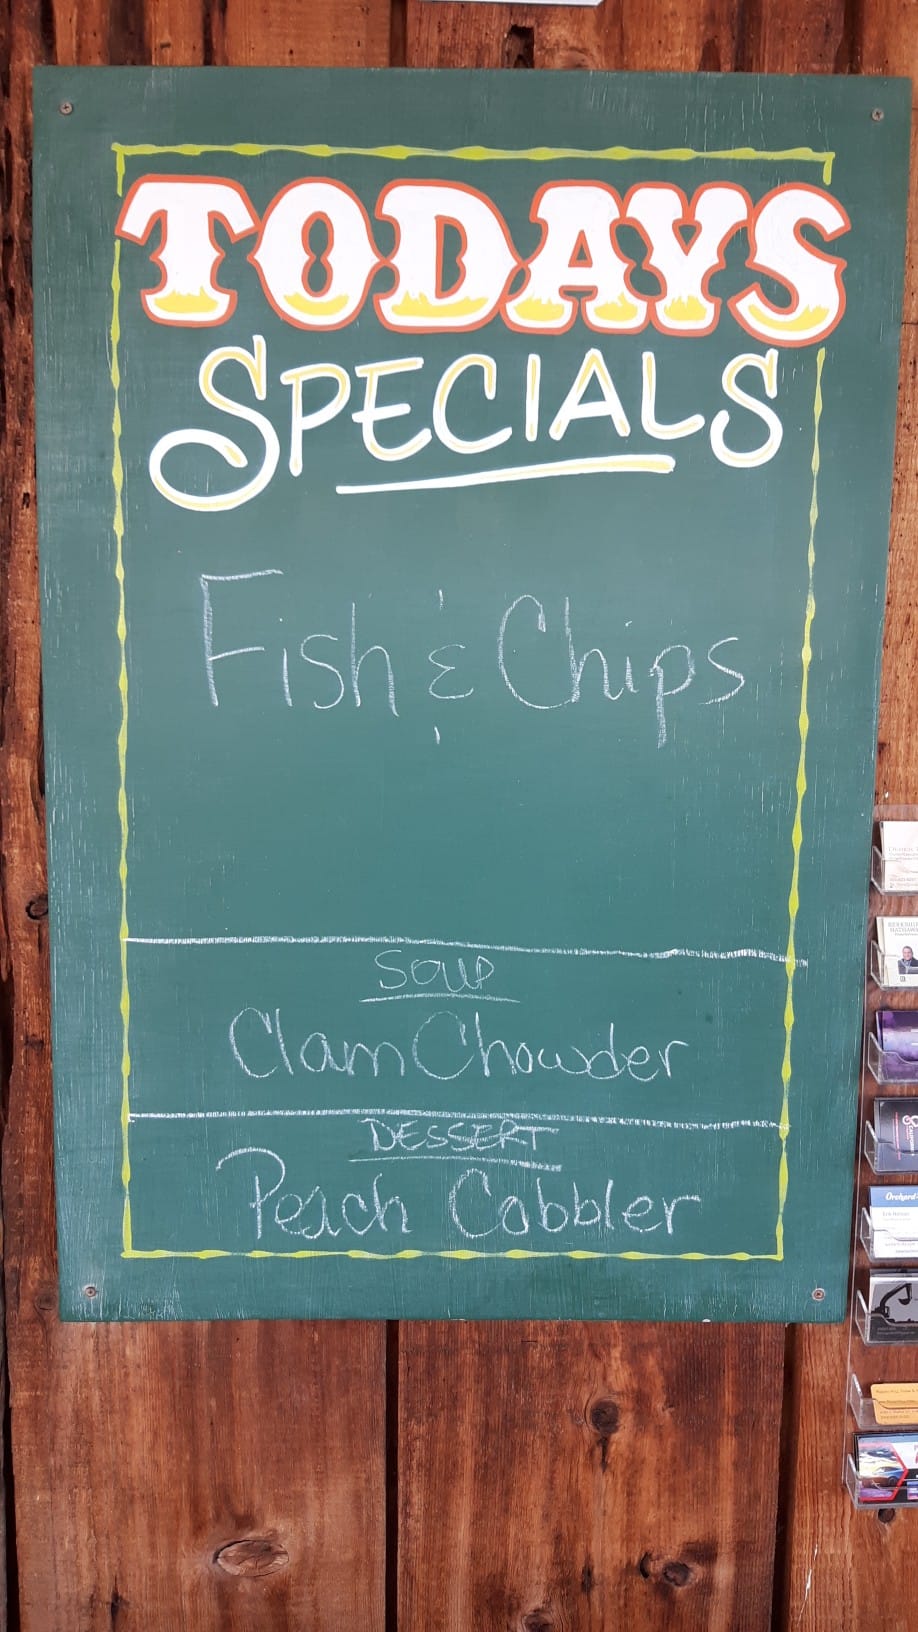 TODAYS
SPECIALS
Fish & Chips
Soup
Clam Chowder
DESSERT
Peach Cobbler
BERKSHIRE
HATHAWAY